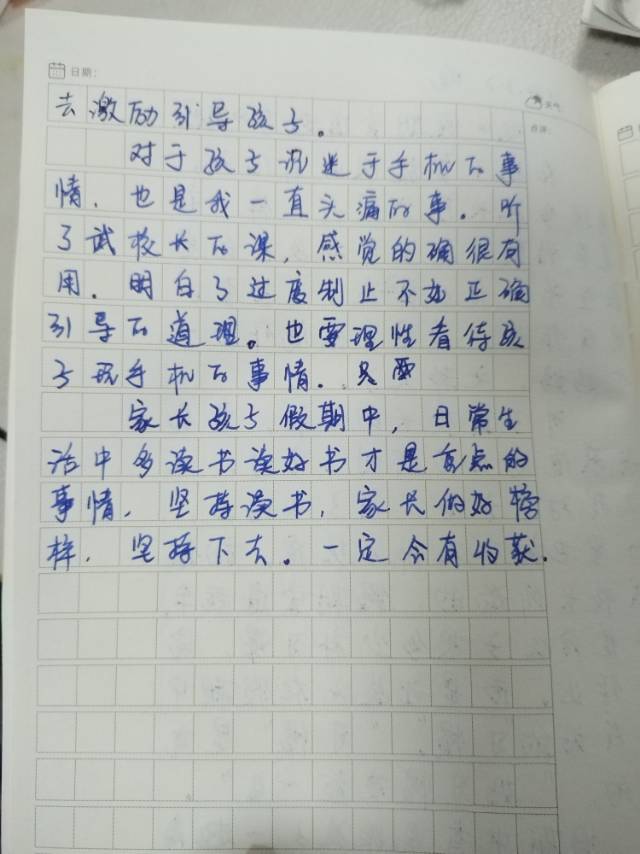 日期:
天气
去激励引导孩子。
对于孩子沉迷于手机的事
情.也是我一直头痛的事.听
了武校长的课,感觉的确很有
用.明白了过度制止不如正确
引导的道理。也要理性看待孩
子玩手机的事情.只要
家长孩子假期中,日常生
活中多读书读好书才是有点的
事情,坚持读书,家长做好榜
样.坚持下去.一定会有收获.